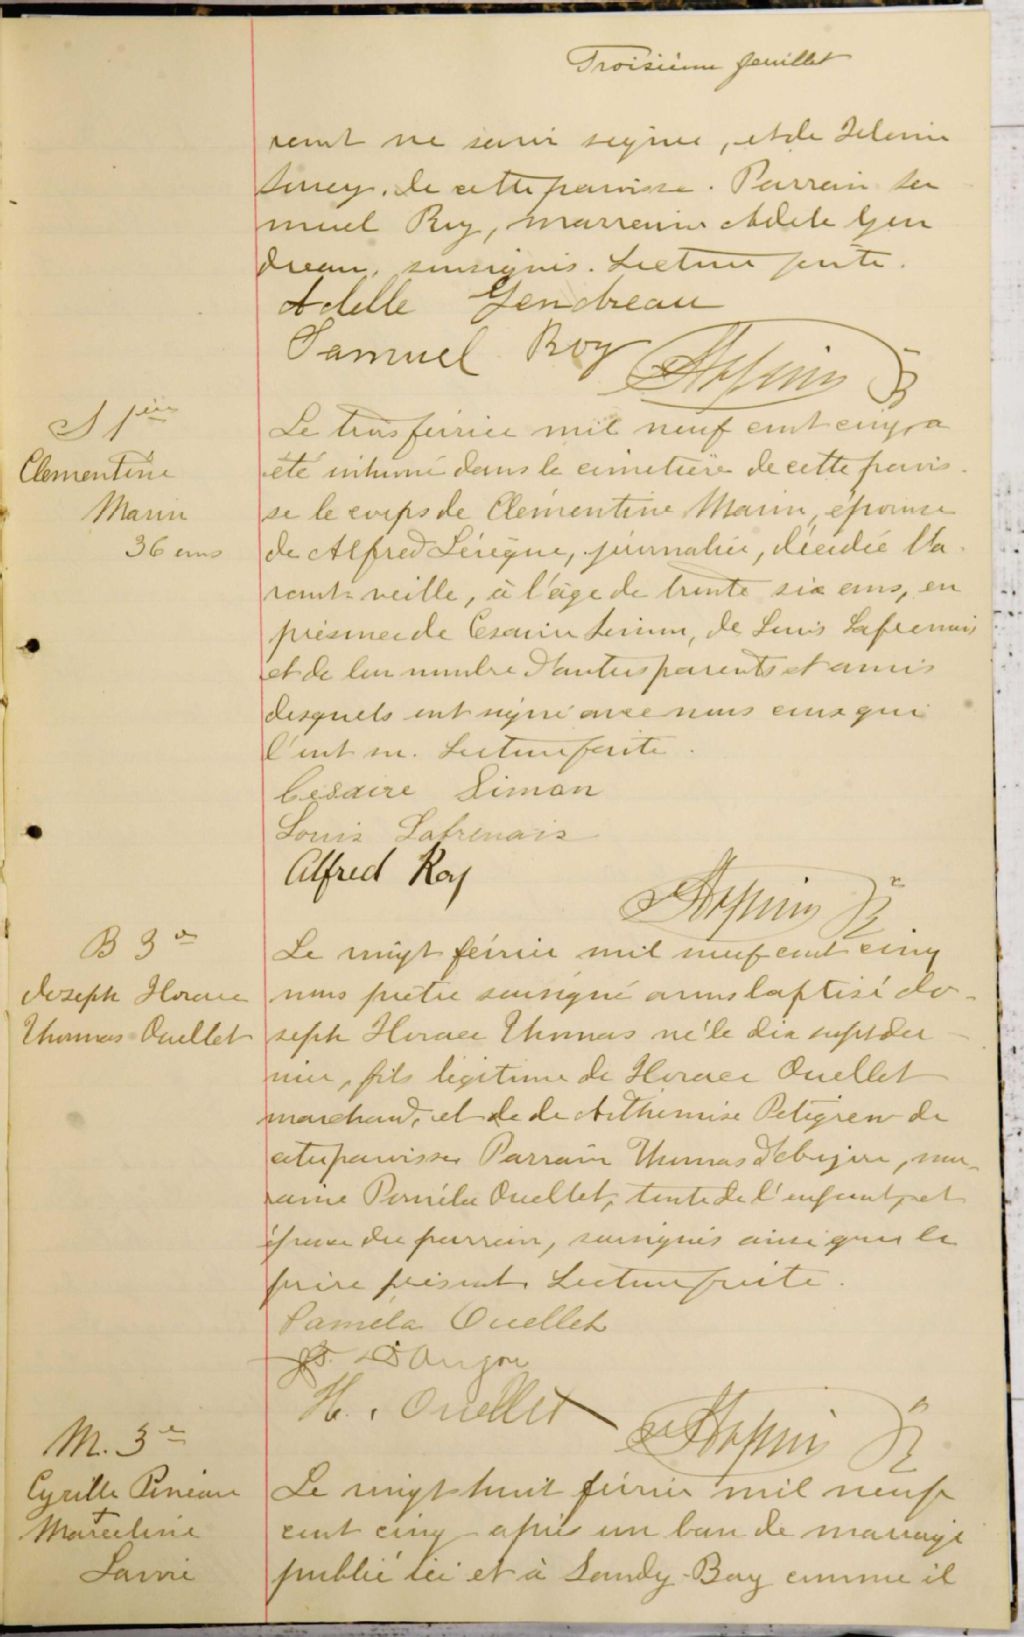 Troisième feuillet
rant ne savoir signer, et de Zelmire
Savoy, de cette paroisse. Parrain Sa
muel Roy, marraine Adele Gen
dreau, soussignés. Lecture faite.
Adelle Gendreau
Samuel Roy
S 1ère
Clementine
Marin
36 ans
Le trois février mil neuf cent cinq, a
été inhumé dans le cimetière de cette parois-
se le corps de Clémentine Marin, épouse
de Alfred Lévêque, journalier, décédée l'a-
vant-veille, à l'âge de trente six ans, en
présence de Cesaire Simon, de Louis Lafrenais
et de bon nombre d'autres parents et amis
desquels ont signé avec nous ceux qui
l'ont su. Lecture faite.
Cesaire Simon
Louis Lafrenais
Alfred Roy
B 3e
Joseph Horace
Thomas Ouellet
Le vingt février mil neuf cent cinq
nous prêtre soussigné avons baptisé Jo-
seph Horace Thomas né le dix sept der-
nier, fils légitime de Horace Ouellet
marchand, et de de Arthemise Petigrew de
cette paroisse Parrain Thomas, mar-
raine Paméla Ouellet, tante de l'enfant, et
épouse du parrain, soussignés ainsi que le
père présent. Lecture faite.
Paméla Ouellet
D'Anjou
H. Ouellet
M. 3e
Cyrille Pineau
+
Marceline
Lavoie
Le vingt huit février mil neuf
cent cinq après un ban de mariage
publié ici et à Sandy-Bay comme il